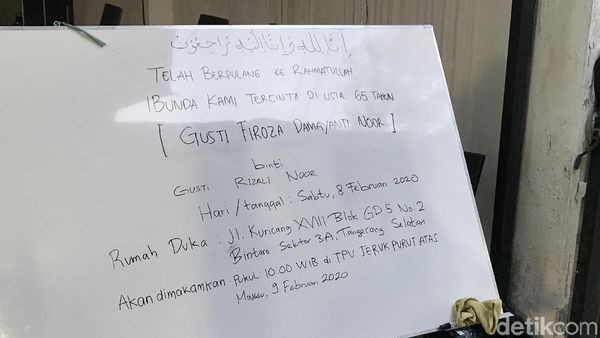 إنا لله وإنا إليه راجعون
TELAH BERPULANG KE RAHMATULLAH
IBUNDA KAMI TERCINTA DI USIA 65 TAHUN
[ GUSTI FIROZA DAMAYANTI NOOR ]
binti
GUSTI RIZALI NOOR
Hari/tanggal : Sabtu, 8 Februari 2020
Rumah Duka : Jl. Kuricang XVIII Blok GD 5 No. 2
Bintaro Sektor 3A, Tangerang Selatan
Akan dimakamkan : PUKUL 10:00 WIB di TPU JERUK PURUT ATAS
MINGGU, 9 Februari 2020
detikcom